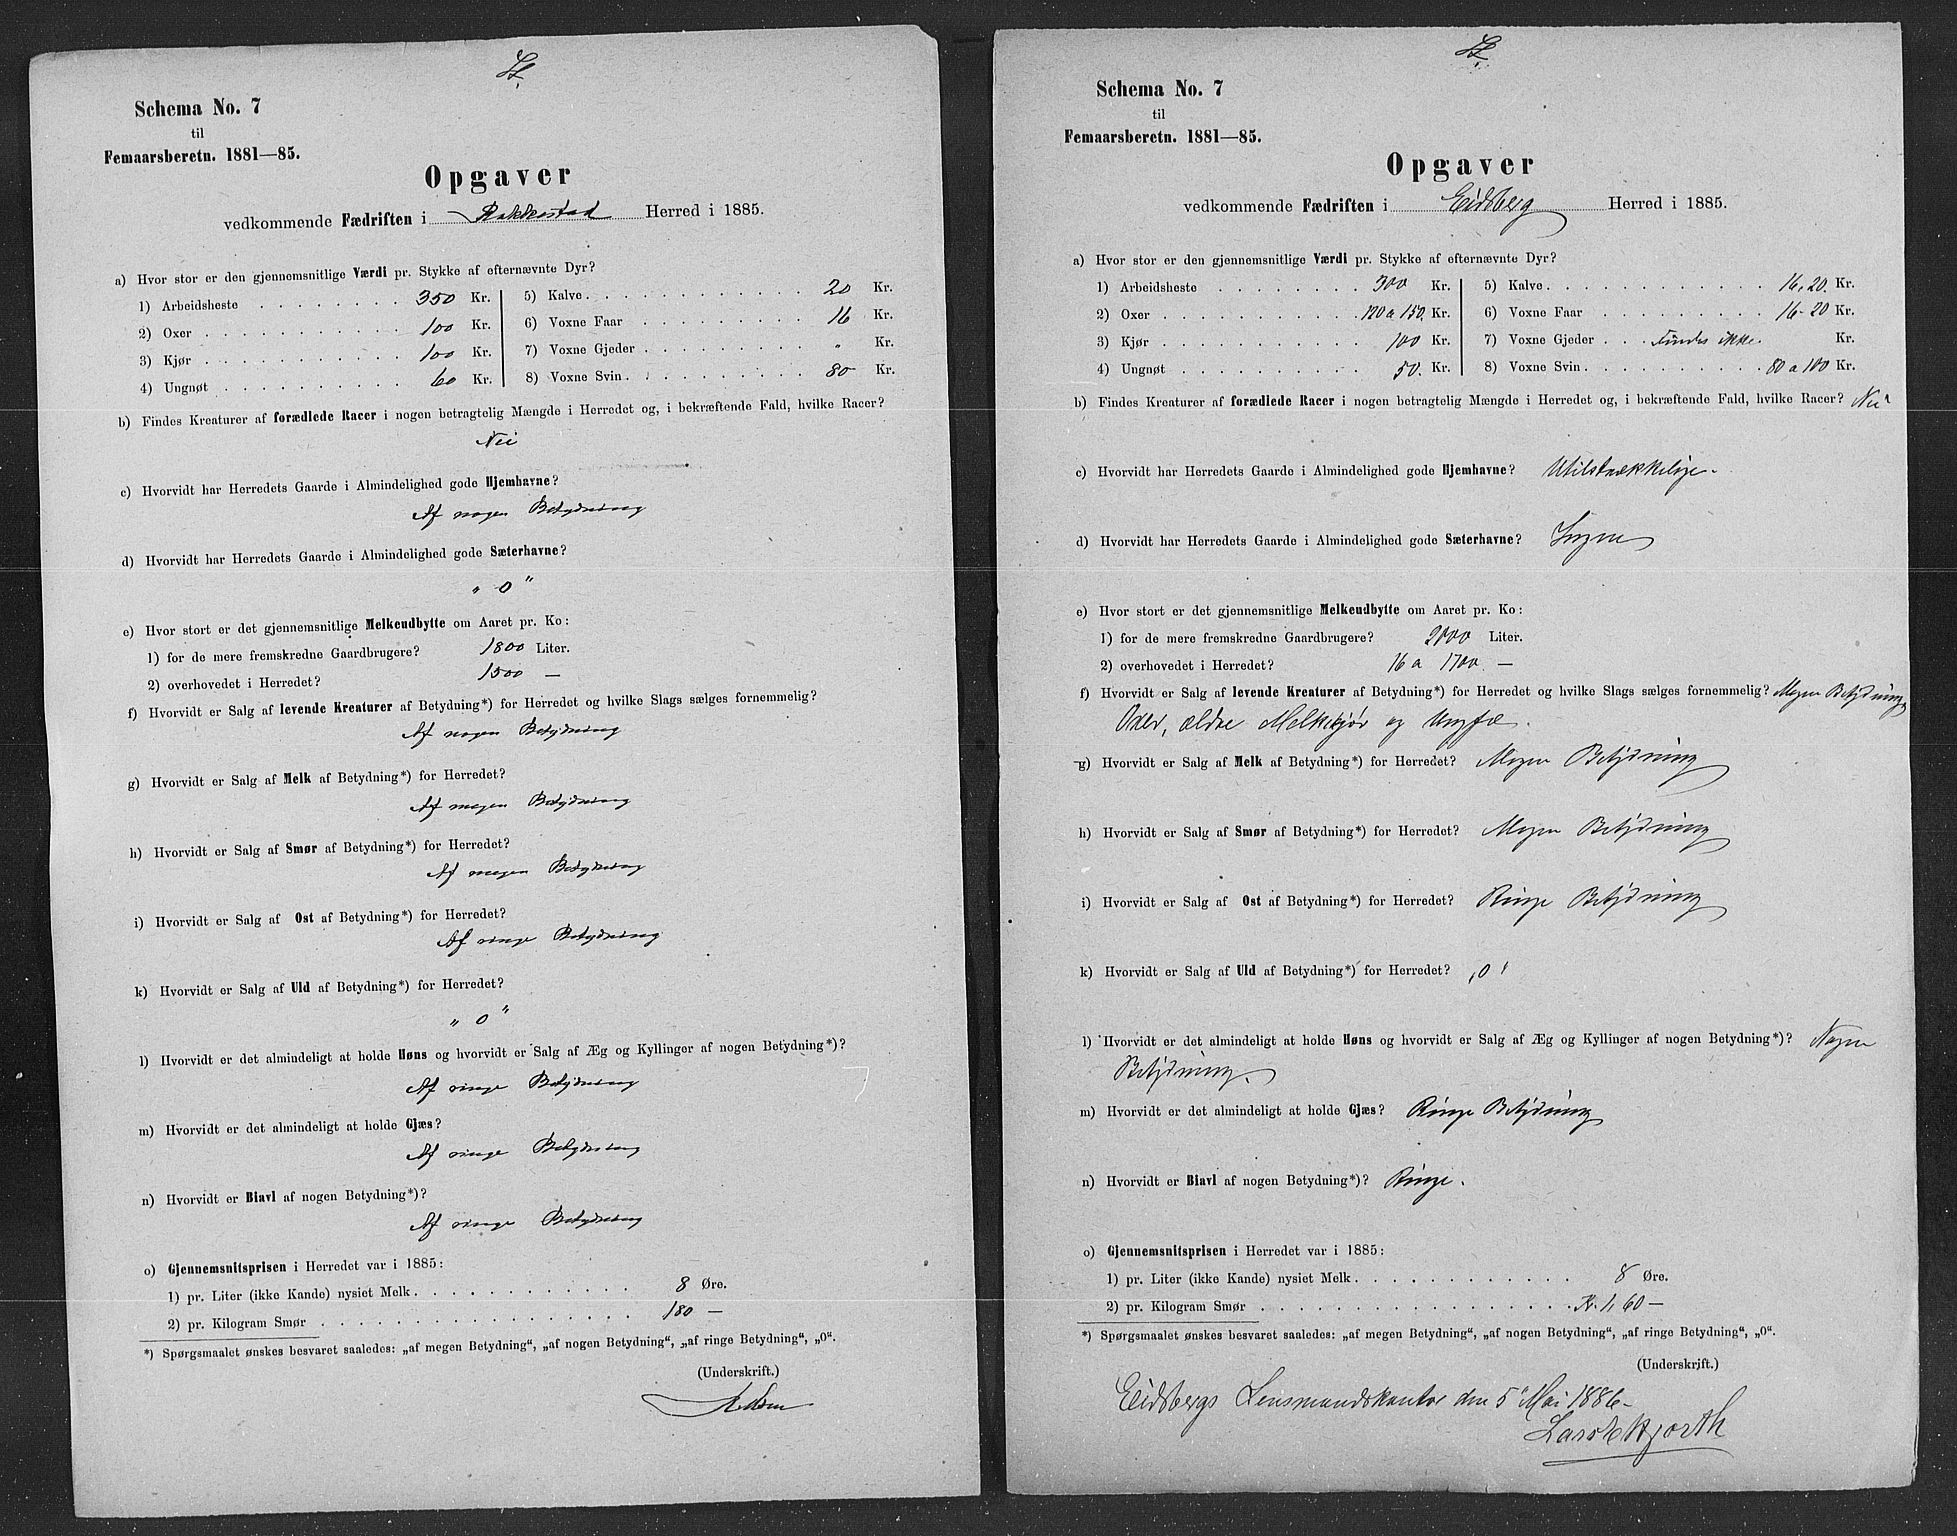 Schema No. 7
til
Femaarsberetn. 1881—85.
Opgaver
vedkommende Fædriften i Rakkestad Herred i 1885.
a) Hvor stor er den gjennemsnitlige Værdi pr. Stykke af efternævnte Dyr?
1) Arbeidsheste 350 Kr.
2) Oxer 100 Kr.
3) Kjør 100 Kr.
4) Ungnøt 60 Kr.
5) Kalve 20 Kr.
6) Voxne Faar 16 Kr.
7) Voxne Gjeder " Kr.
8) Voxne Svin 80 Kr.
b) Findes Kreaturer af forædlede Racer i nogen betragtelig Mængde i Herredet og, i bekræftende Fald, hvilke Racer?
Nei
c) Hvorvidt har Herredets Gaarde i Almindelighed gode Hjemhavne?
Af nogen Betydning
d) Hvorvidt har Herredets Gaarde i Almindelighed gode Sæterhavne?
" 0 "
e) Hvor stort er det gjennemsnitlige Melkeudbytte om Aaret pr. Ko:
1) for de mere fremskredne Gaardbrugere? 1800 Liter.
2) overhovedet i Herredet? 1500 —
f) Hvorvidt er Salg af levende Kreaturer af Betydning*) for Herredet og hvilke Slags sælges fornemmelig?
Af nogen Betydning
g) Hvorvidt er Salg af Melk af Betydning*) for Herredet?
Af megen Betydning
h) Hvorvidt er Salg af Smør af Betydning*) for Herredet?
Af megen Betydning
i) Hvorvidt er Salg af Ost af Betydning*) for Herredet?
Af ringe Betydning
k) Hvorvidt er Salg af Uld af Betydning*) for Herredet?
" 0 "
l) Hvorvidt er det almindeligt at holde Høns og hvorvidt er Salg af Æg og Kyllinger af nogen Betydning*)?
Af ringe Betydning
m) Hvorvidt er det almindeligt at holde Gjæs?
Af ringe Betydning
n) Hvorvidt er Biavl af nogen Betydning*)?
Af ringe Betydning
o) Gjennemsnitsprisen i Herredet var i 1885:
1) pr. Liter (ikke Kande) nysiet Melk 8 Øre.
2) pr. Kilogram Smør 180 —
*) Spørgsmaalet ønskes besvaret saaledes: „af megen Betydning“, „af nogen Betydning“, „af ringe Betydning“, „0“.
(Underskrift.)
Schema No. 7
til
Femaarsberetn. 1881—85.
Opgaver
vedkommende Fædriften i Eidsberg Herred i 1885.
a) Hvor stor er den gjennemsnitlige Værdi pr. Stykke af efternævnte Dyr?
1) Arbeidsheste 300 Kr.
2) Oxer 120 a 150. Kr.
3) Kjør 100 Kr.
4) Ungnøt 50. Kr.
5) Kalve 16, 20. Kr.
6) Voxne Faar 16-20 Kr.
7) Voxne Gjeder Findes ikke. Kr.
8) Voxne Svin 80 a 100 Kr.
b) Findes Kreaturer af forædlede Racer i nogen betragtelig Mængde i Herredet og, i bekræftende Fald, hvilke Racer? Nei
c) Hvorvidt har Herredets Gaarde i Almindelighed gode Hjemhavne? Utilstrækkelige.
d) Hvorvidt har Herredets Gaarde i Almindelighed gode Sæterhavne? Ingen
e) Hvor stort er det gjennemsnitlige Melkeudbytte om Aaret pr. Ko:
1) for de mere fremskredne Gaardbrugere? 2000 Liter.
2) overhovedet i Herredet? 16 a 1700 —
f) Hvorvidt er Salg af levende Kreaturer af Betydning*) for Herredet og hvilke Slags sælges fornemmelig? Megen Betydning
Oxer, ældre Melkekjør og Ungfæ.
g) Hvorvidt er Salg af Melk af Betydning*) for Herredet? Megen Betydning
h) Hvorvidt er Salg af Smør af Betydning*) for Herredet? Megen Betydning
i) Hvorvidt er Salg af Ost af Betydning*) for Herredet? Ringe Betydning
k) Hvorvidt er Salg af Uld af Betydning*) for Herredet? „0“
l) Hvorvidt er det almindeligt at holde Høns og hvorvidt er Salg af Æg og Kyllinger af nogen Betydning*)? Nogen
Betydning.
m) Hvorvidt er det almindeligt at holde Gjæs? Ringe Betydning
n) Hvorvidt er Biavl af nogen Betydning*)? Ringe.
o) Gjennemsnitsprisen i Herredet var i 1885:
1) pr. Liter (ikke Kande) nysiet Melk 8 Øre.
2) pr. Kilogram Smør Kr. 1,60 —
*) Spørgsmaalet ønskes besvaret saaledes: „af megen Betydning“, „af nogen Betydning“, „af ringe Betydning“, „0“.
(Underskrift.)
Eidsbergs Lensmandskontor den 5 Mai 1886